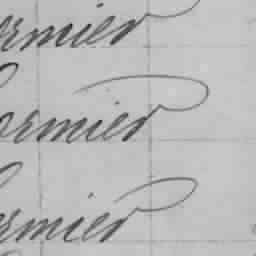 ormier
ormier
ormier